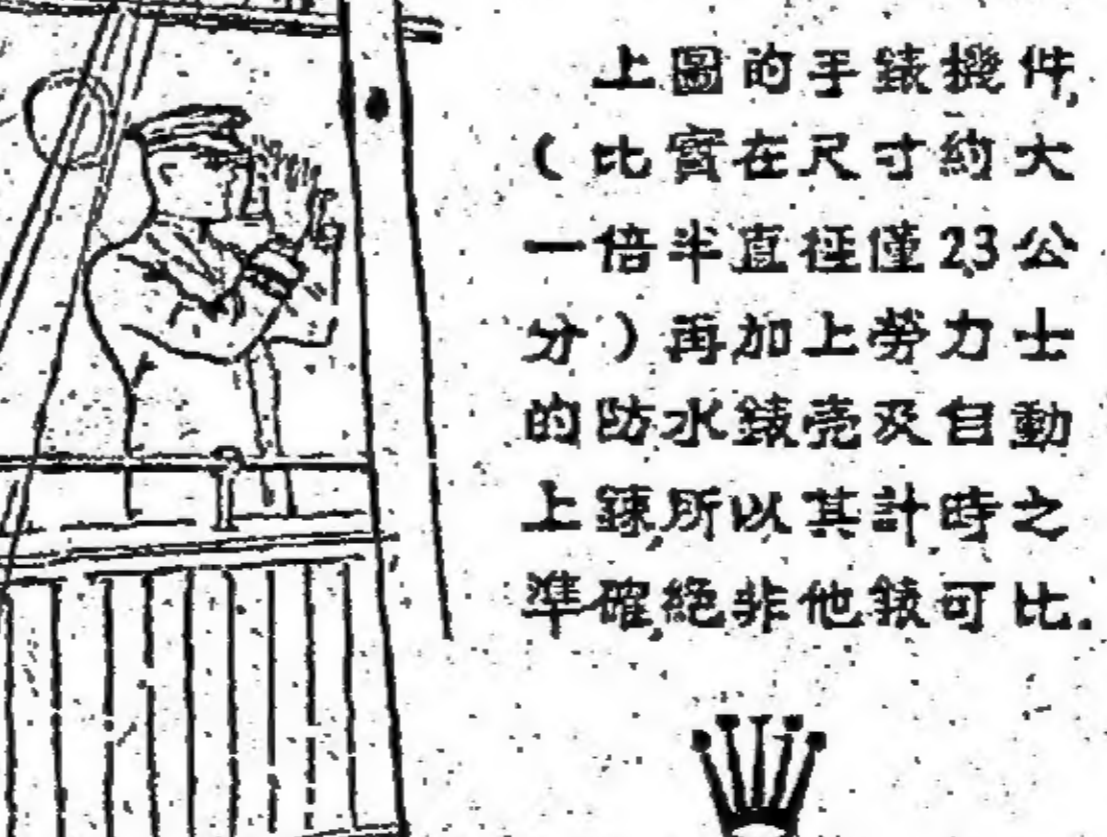 上圖的手錶機件,
(比實在尺寸約大
一倍半直徑僅2.3公
分)再加上勞力士
的防水錶壳及自動
上鍊,所以其計時之
準確,絕非他錶可比.